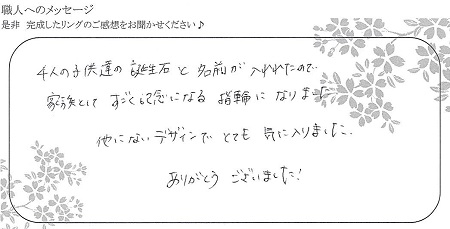 職人へのメッセージ
是非 完成したリングのご感想をお聞かせください♪
4人の子供達の誕生石と名前が入れれたので
家族として すごく記念になる 指輪に なりました
他にないデザインで とても 気に入りました.
ありがとう ございました!